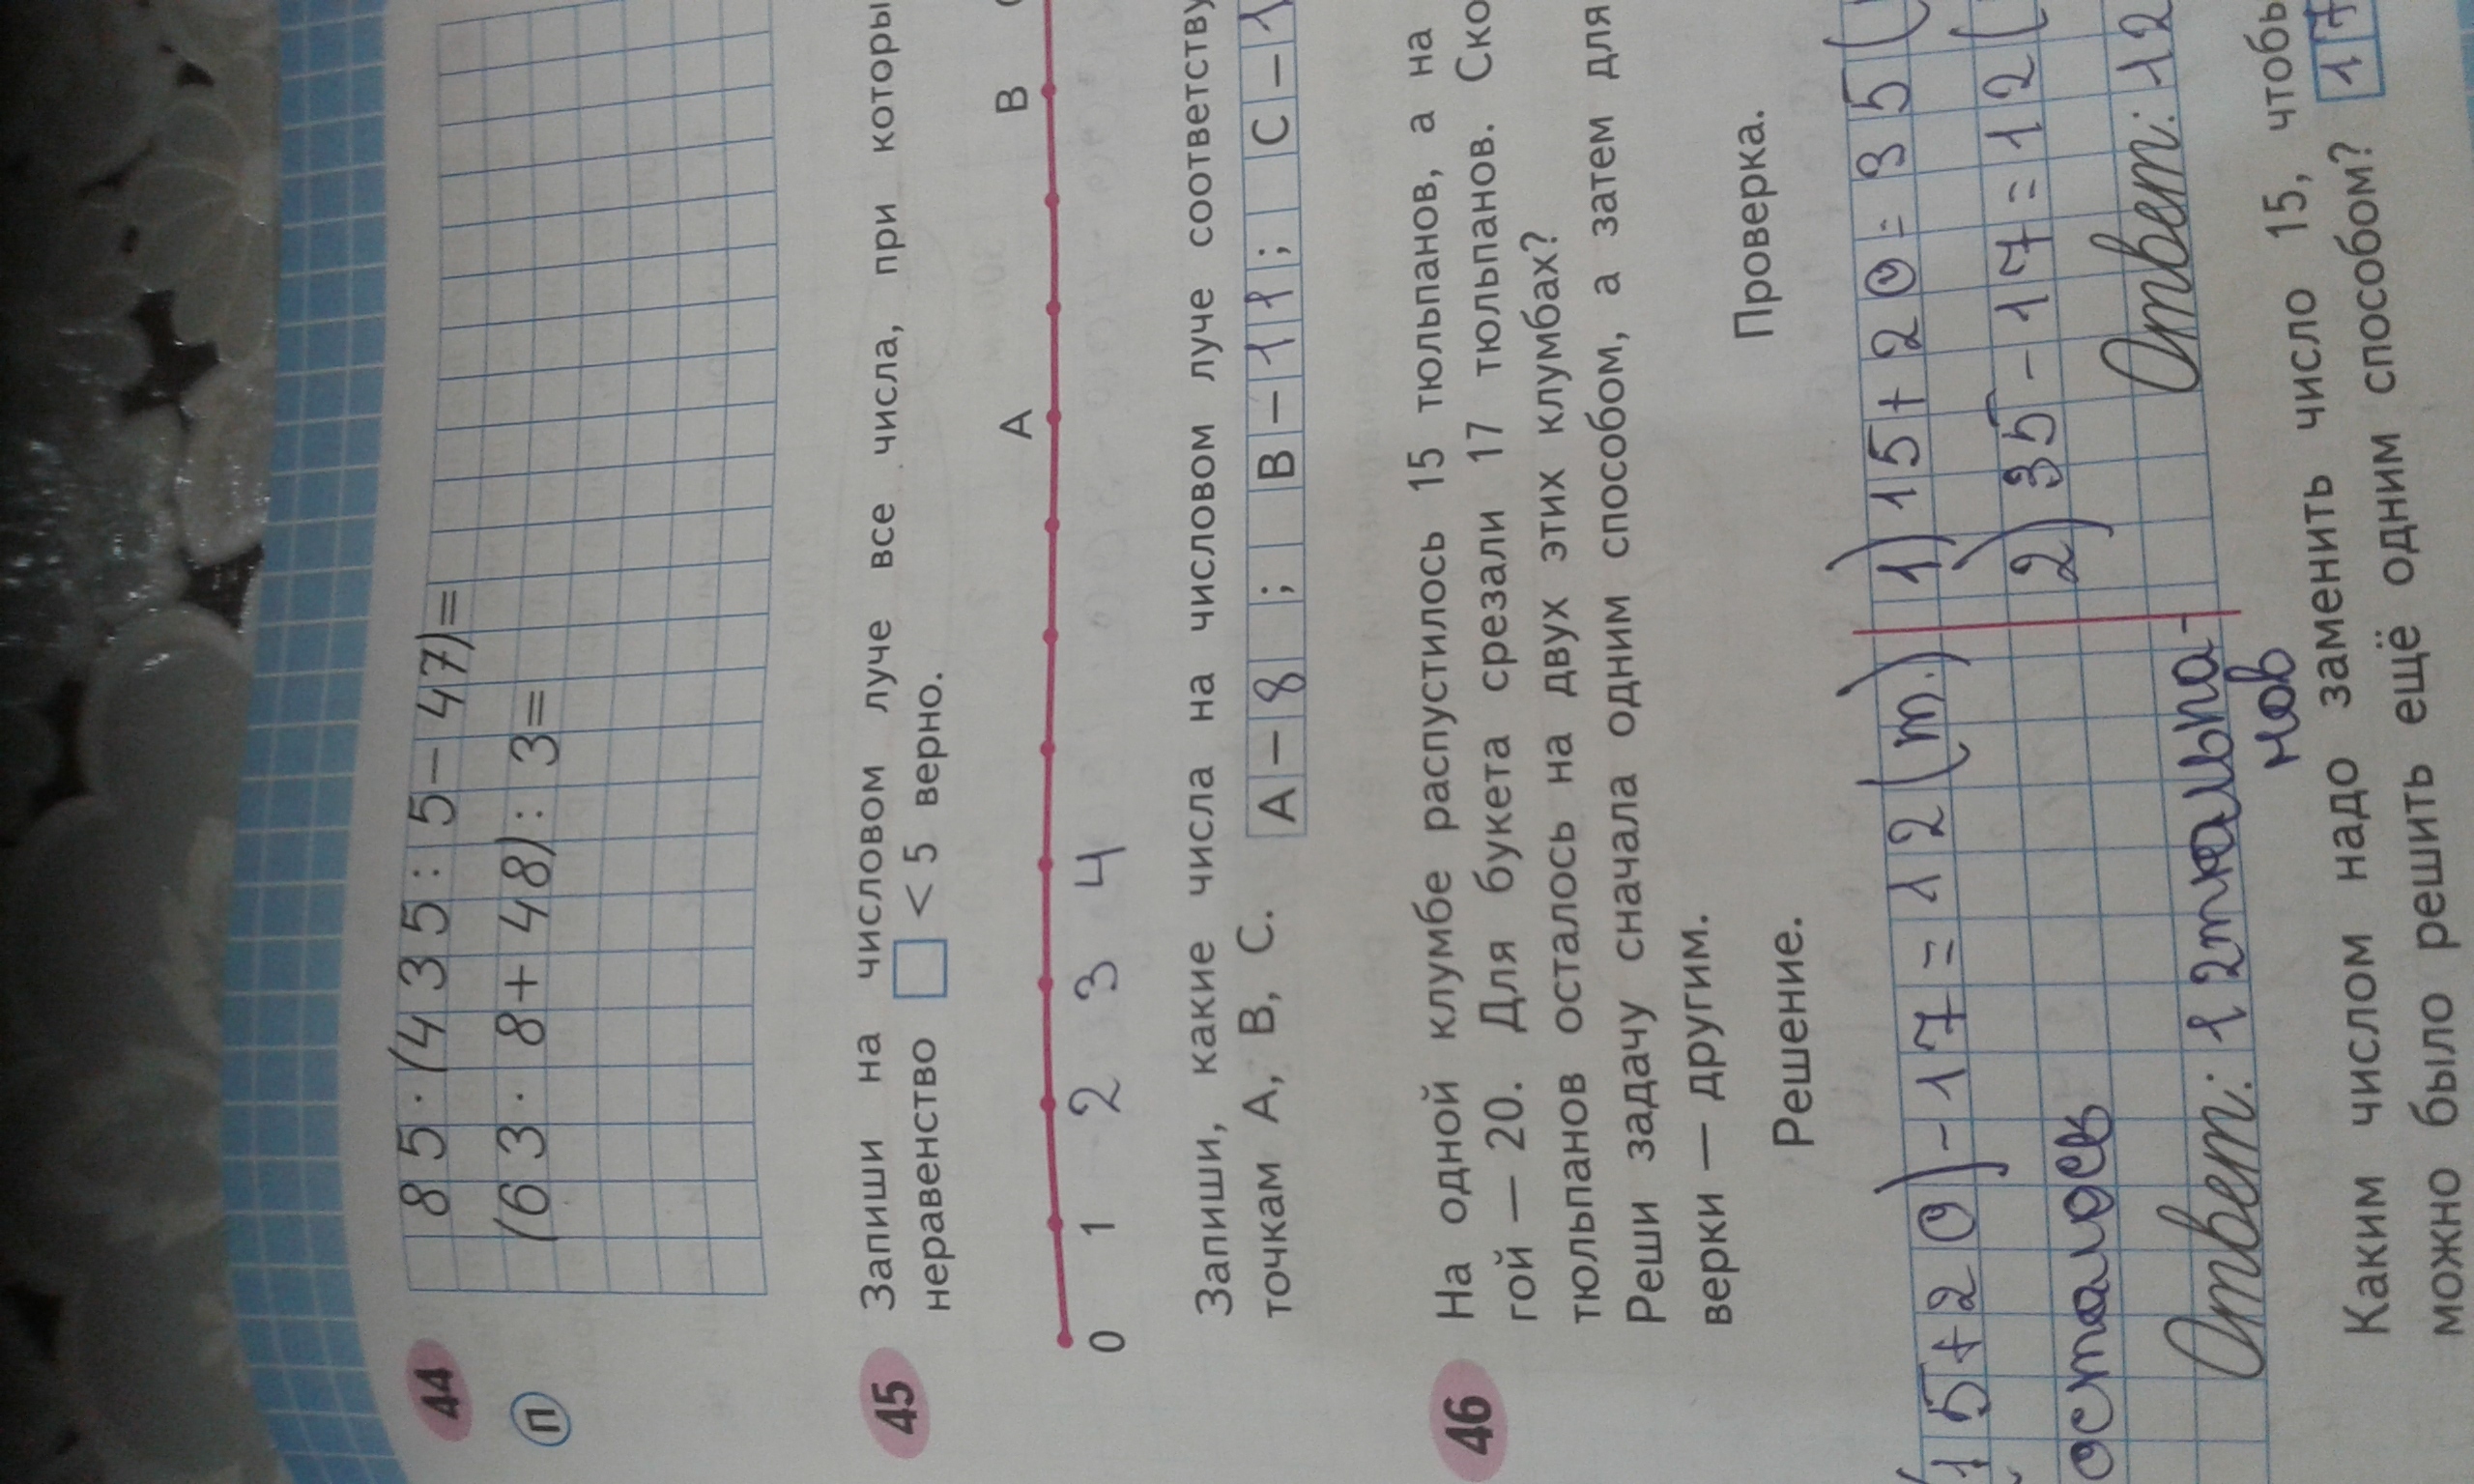 44 85·(435:5-47)=
П (63·8+48):3=
45 Запиши на числовом луче все числа, при которы
неравенство □ < 5 верно.
А В
0 1 2 3 4
Запиши, какие числа на числовом луче соответству
точкам А, В, С. А-8; В-11; С-1
46 На одной клумбе распустилось 15 тюльпанов, а на
гой — 20. Для букета срезали 17 тюльпанов. Ско
тюльпанов осталось на двух этих клумбах?
Реши задачу сначала одним способом, а затем для
верки — другим.
Решение. Проверка.
(15+20)-17=12(т.) 1) 15+20=35(
осталось 2) 35-17=12(
Ответ: 12 тюльпа- Ответ: 12
нов
Каким числом надо заменить число 15, чтобы
можно было решить ещё одним способом? 17